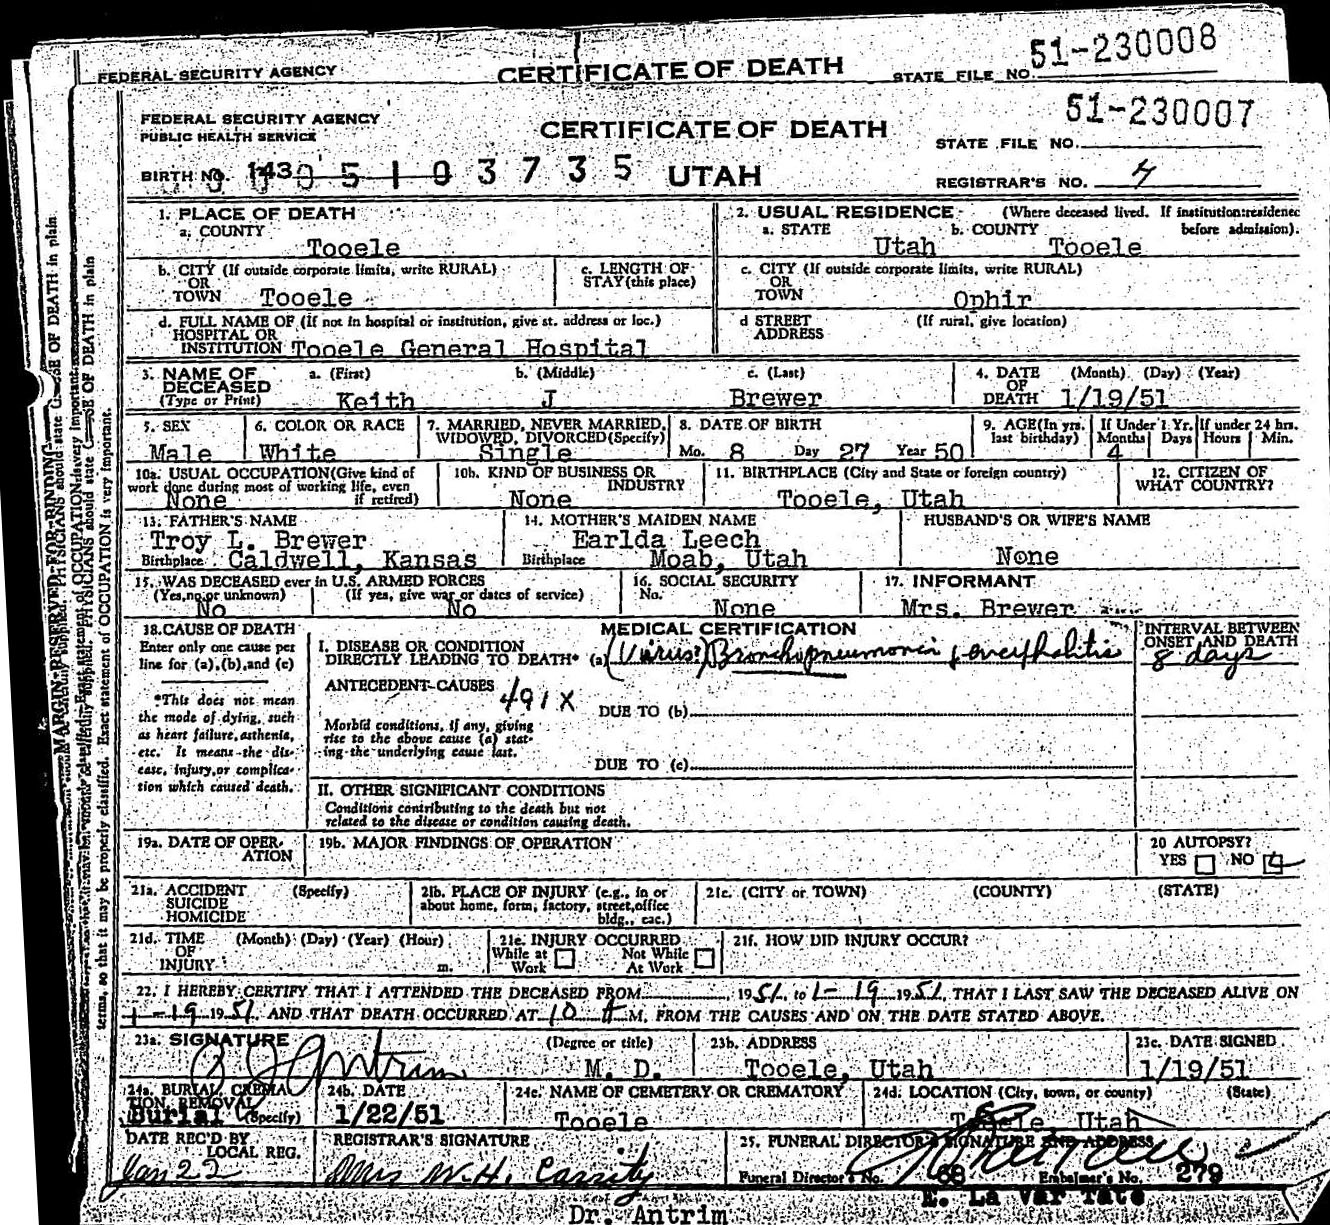 51-230008
FEDERAL SECURITY AGENCY CERTIFICATE OF DEATH STATE FILE NO.
51-230007
FEDERAL SECURITY AGENCY
PUBLIC HEALTH SERVICE CERTIFICATE OF DEATH STATE FILE NO.
BIRTH NO. 143 0 5 1 0 3 7 3 5 UTAH REGISTRAR'S NO. 4
1. PLACE OF DEATH 2. USUAL RESIDENCE (Where deceased lived. If institution:residence
a. COUNTY a. STATE b. COUNTY before admission).
Tooele Utah Tooele
b. CITY (If outside corporate limits, write RURAL) c. LENGTH OF c. CITY (If outside corporate limits, write RURAL)
OR STAY(this place) OR
TOWN Tooele TOWN Ophir
d. FULL NAME OF (If not in hospital or institution, give st. address or loc.) d STREET (If rural, give location)
HOSPITAL OR ADDRESS
INSTITUTION Tooele General Hospital
3. NAME OF a. (First) b. (Middle) c. (Last) 4. DATE (Month) (Day) (Year)
DECEASED OF
(Type or Print) Keith J Brewer DEATH 1/19/51
5. SEX 6. COLOR OR RACE 7. MARRIED, NEVER MARRIED, 8. DATE OF BIRTH 9. AGE(In yrs. If Under 1 Yr. If under 24 hrs.
WIDOWED, DIVORCED(Specify) last birthday) Months Days Hours Min.
Male White Single Mo. 8 Day 27 Year 50 4
10a. USUAL OCCUPATION(Give kind of 10b. KIND OF BUSINESS OR 11. BIRTHPLACE (City and State or foreign country) 12. CITIZEN OF
work done during most of working life, even INDUSTRY WHAT COUNTRY?
None if retired) None Tooele, Utah
13. FATHER'S NAME 14. MOTHER'S MAIDEN NAME HUSBAND'S OR WIFE'S NAME
Troy L. Brewer Earlda Leech
Birthplace Caldwell, Kansas Birthplace Moab, Utah None
15. WAS DECEASED ever in U.S. ARMED FORCES 16. SOCIAL SECURITY 17. INFORMANT
(Yes,no,or unknown) (If yes, give war or dates of service) No.
No No None Mrs. Brewer
18. CAUSE OF DEATH MEDICAL CERTIFICATION INTERVAL BETWEEN
Enter only one cause per I. DISEASE OR CONDITION ONSET AND DEATH
line for (a),(b),and (c) DIRECTLY LEADING TO DEATH* (a) (Virus?) Bronchopneumonia & encephalitis 8 days
ANTECEDENT CAUSES 491X
*This does not mean DUE TO (b)
the mode of dying, such Morbid conditions, if any, giving
as heart failure, asthenia, rise to the above cause (a) stat-
etc. It means the dis- ing the underlying cause last.
ease, injury,or complica- DUE TO (c)
tion which caused death. II. OTHER SIGNIFICANT CONDITIONS
Conditions contributing to the death but not
related to the disease or condition causing death.
19a. DATE OF OPER- 19b. MAJOR FINDINGS OF OPERATION 20 AUTOPSY?
ATION YES NO
21a. ACCIDENT (Specify) 21b. PLACE OF INJURY (e.g., in or 21c. (CITY or TOWN) (COUNTY) (STATE)
SUICIDE about home, form, factory, street,office
HOMICIDE bldg., eac.)
21d. TIME (Month) (Day) (Year) (Hour) 21e. INJURY OCCURRED 21f. HOW DID INJURY OCCUR?
OF While at Not While
INJURY m. Work At Work
22. I HEREBY CERTIFY THAT I ATTENDED THE DECEASED FROM 1951, to 1-19 1951, THAT I LAST SAW THE DECEASED ALIVE ON
1-19 1951, AND THAT DEATH OCCURRED AT 10 A M. FROM THE CAUSES AND ON THE DATE STATED ABOVE.
23a. SIGNATURE (Degree or title) 23b. ADDRESS 23c. DATE SIGNED
Antrim M. D. Tooele, Utah 1/19/51
24a. BURIAL, CREMA- 24b. DATE 24c. NAME OF CEMETERY OR CREMATORY 24d. LOCATION (City, town, or county) (State)
TION, REMOVAL
Burial (Specify) 1/22/51 Tooele Tooele, Utah
DATE REC'D BY REGISTRAR'S SIGNATURE 25. FUNERAL DIRECTOR'S SIGNATURE AND ADDRESS
LOCAL REG.
Jan 22 Mrs W.H. Cassity Funeral Director's No. 68 Embalmer's No. 279
E. La Var Tate
Dr. Antrim
MARGIN RESERVED FOR BINDING
PHYSICIANS should state CAUSE OF DEATH in plain
terms, so that it may be properly classified. Exact statement of OCCUPATION is very important.